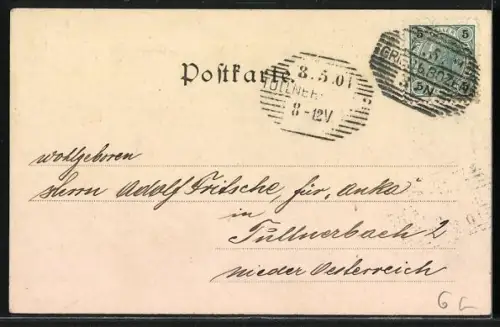 5 5
GRIES B. BOZEN
Postkarte.
8.5.01
TULLNER
8-12V
Wohlgeboren
Herrn Adolf Fritsche, für "Anka"
in
Tullnerbach 2
Nieder Oesterreich